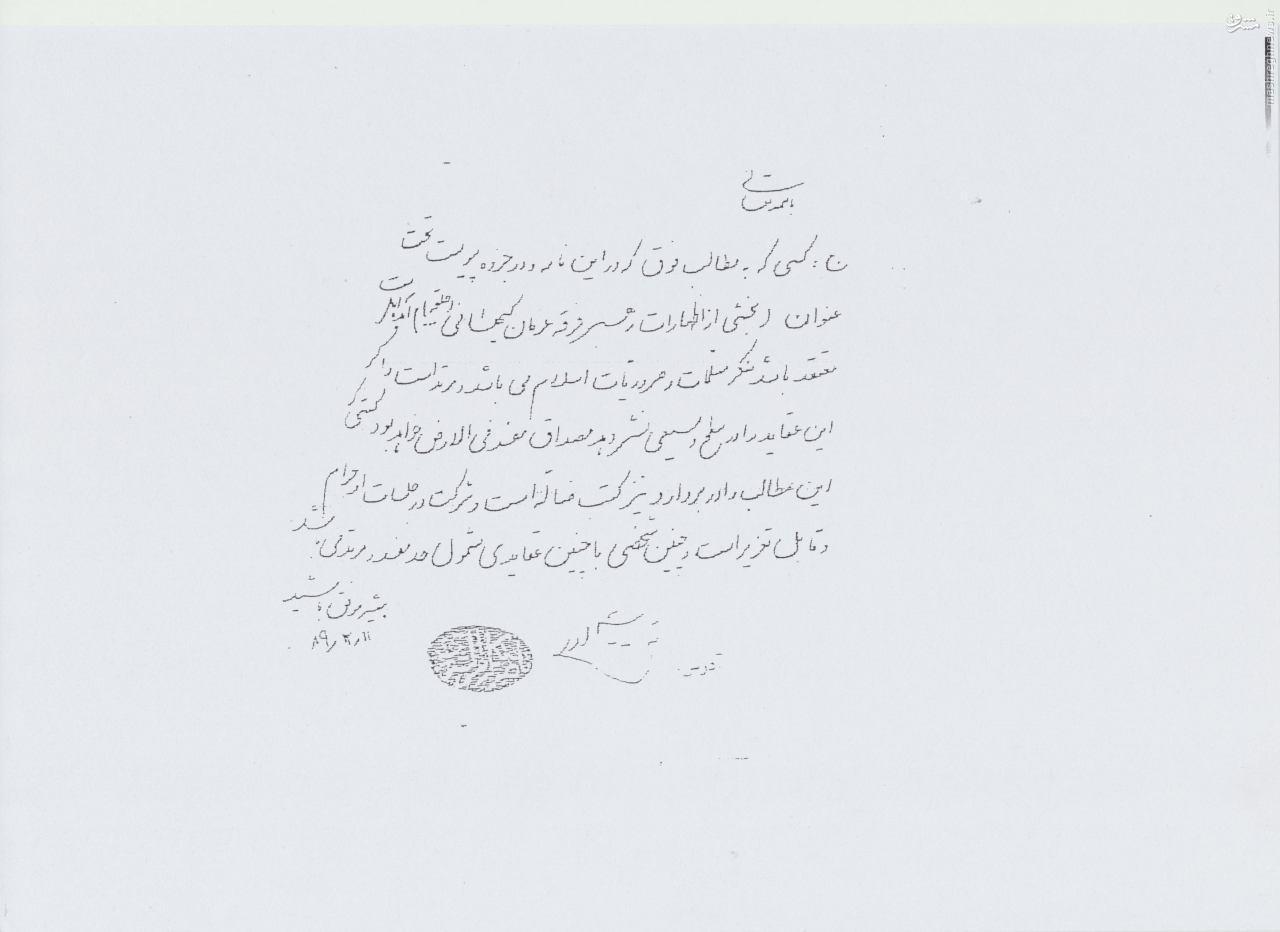 باسمه تعالی
ج: کسی که به مطالب فوق که در این نامه و در جزوه پیوست تحت
عنوان (بخشی از اظهارات رئیس فرقه عرفان کیهانی (حلقه)) آمده است
معتقد باشد منکر مسلمات و ضروریات اسلام می باشد و مرتد است و اگر
این عقاید را در سطح وسیعی نشر دهد مصداق مفسد فی الارض خواهد بود کتبی که
این مطالب را در بر دارد نیز کتب ضالّه است و شرکت در جلسات او حرام
و قابل تعزیر است و چنین شخصی با چنین عقایدی مشمول حد مفسد و مرتد می باشد
همیشه موفق باشید
۸۹٫۲٫۱۱
mashreghnews.ir
مشرق